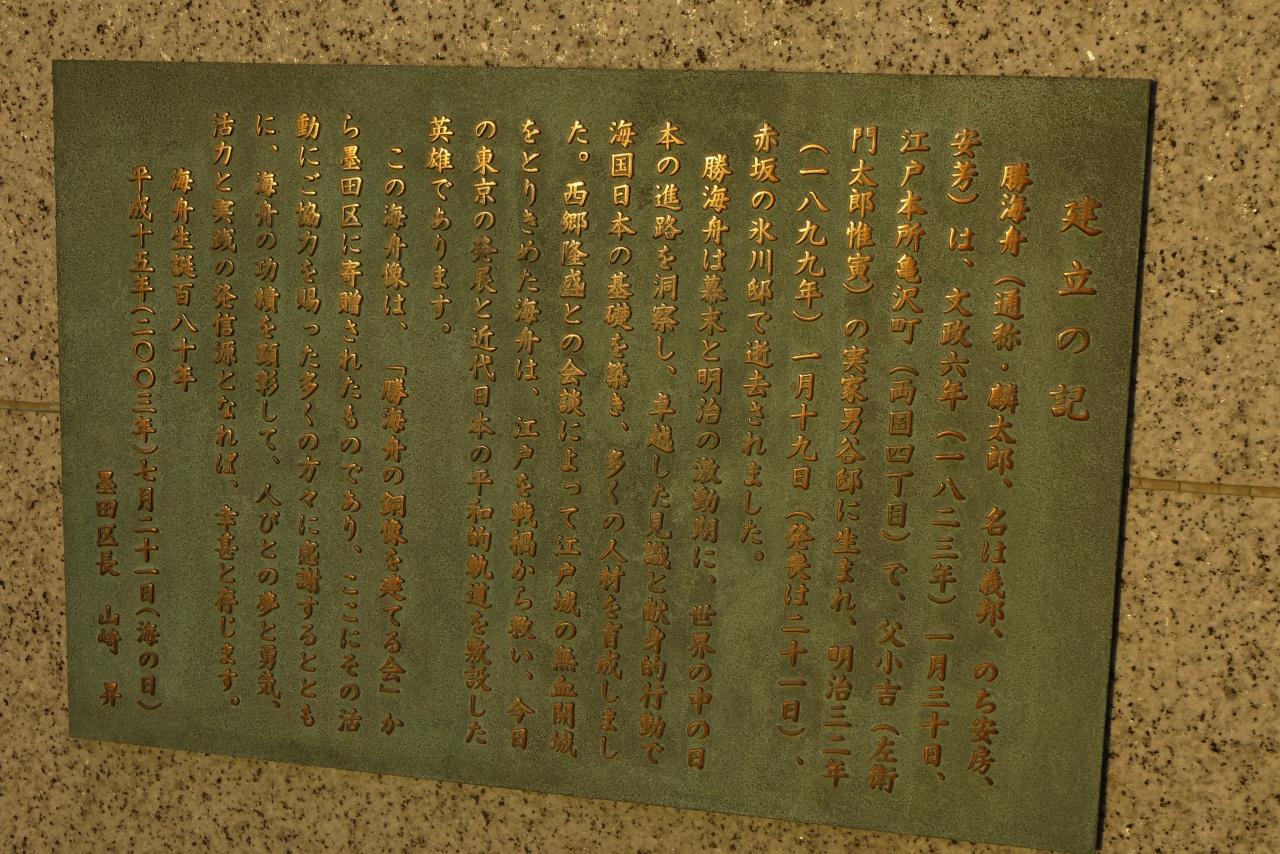 建立の記
勝海舟（通称・麟太郎、名は義邦、のち安房、
安芳）は、文政六年（一八二三年）一月三十日、
江戸本所亀沢町（両国四丁目）で、父小吉（左衛
門太郎惟寅）の実家男谷邸に生まれ、明治三二年
（一八九九年）一月十九日（発喪は二十一日）、
赤坂の氷川邸で逝去されました。
勝海舟は幕末と明治の激動期に、世界の中の日
本の進路を洞察し、卓越した見識と献身的行動で
海国日本の基礎を築き、多くの人材を育成しまし
た。西郷隆盛との会談によって江戸城の無血開城
をとりきめた海舟は、江戸を戦禍から救い、今日
の東京の発展と近代日本の平和的軌道を敷設した
英雄であります。
この海舟像は、「勝海舟の銅像を建てる会」か
ら墨田区に寄贈されたものであり、ここにその活
動にご協力を賜った多くの方々に感謝するととも
に、海舟の功績を顕彰して、人びとの夢と勇気、
活力と実践の発信源となれば、幸甚と存じます。
海舟生誕百八十年
平成十五年（二〇〇三年）七月二十一日（海の日）
墨田区長　山崎　昇